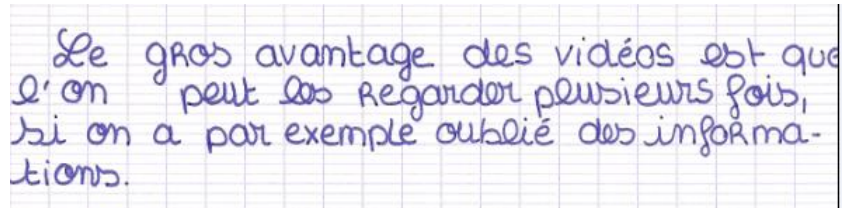 Le gros avantage des vidéos est que
l'on peut les regarder plusieurs fois,
si on a par exemple oublié des informa-
tions.